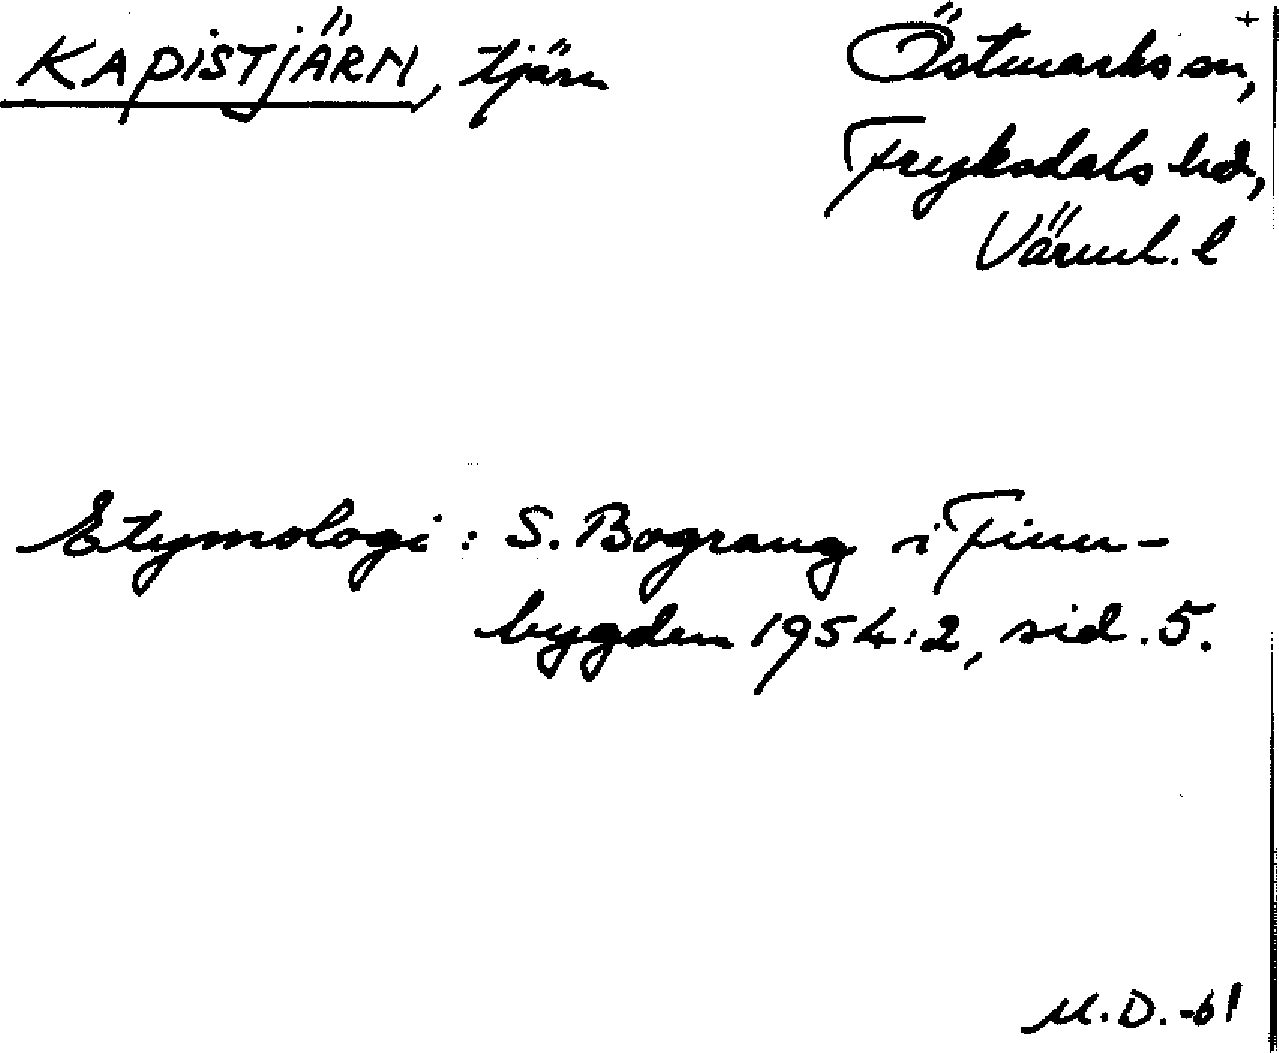 KAPISTJÄRN, tjärn
Östmarks sn, +
Fryksdals hd,
Värml. l
Etymologi: S. Bograng i Finn-
bygden 1954:2, sid. 5.
M.D. -61